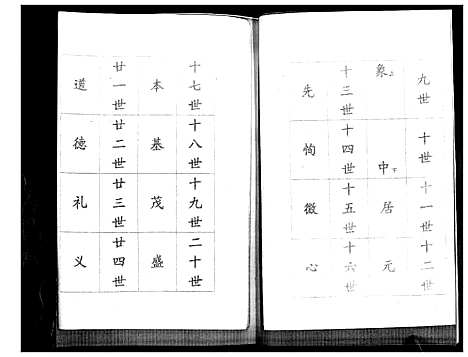 九世 十世 十一世 十二世
象上 中下 居 元
十三世 十四世 十五世 十六世
先 恂 徵 心
十七世 十八世 十九世 二十世
本 基 茂 盛
廿一世 廿二世 廿三世 廿四世
道 德 礼 义